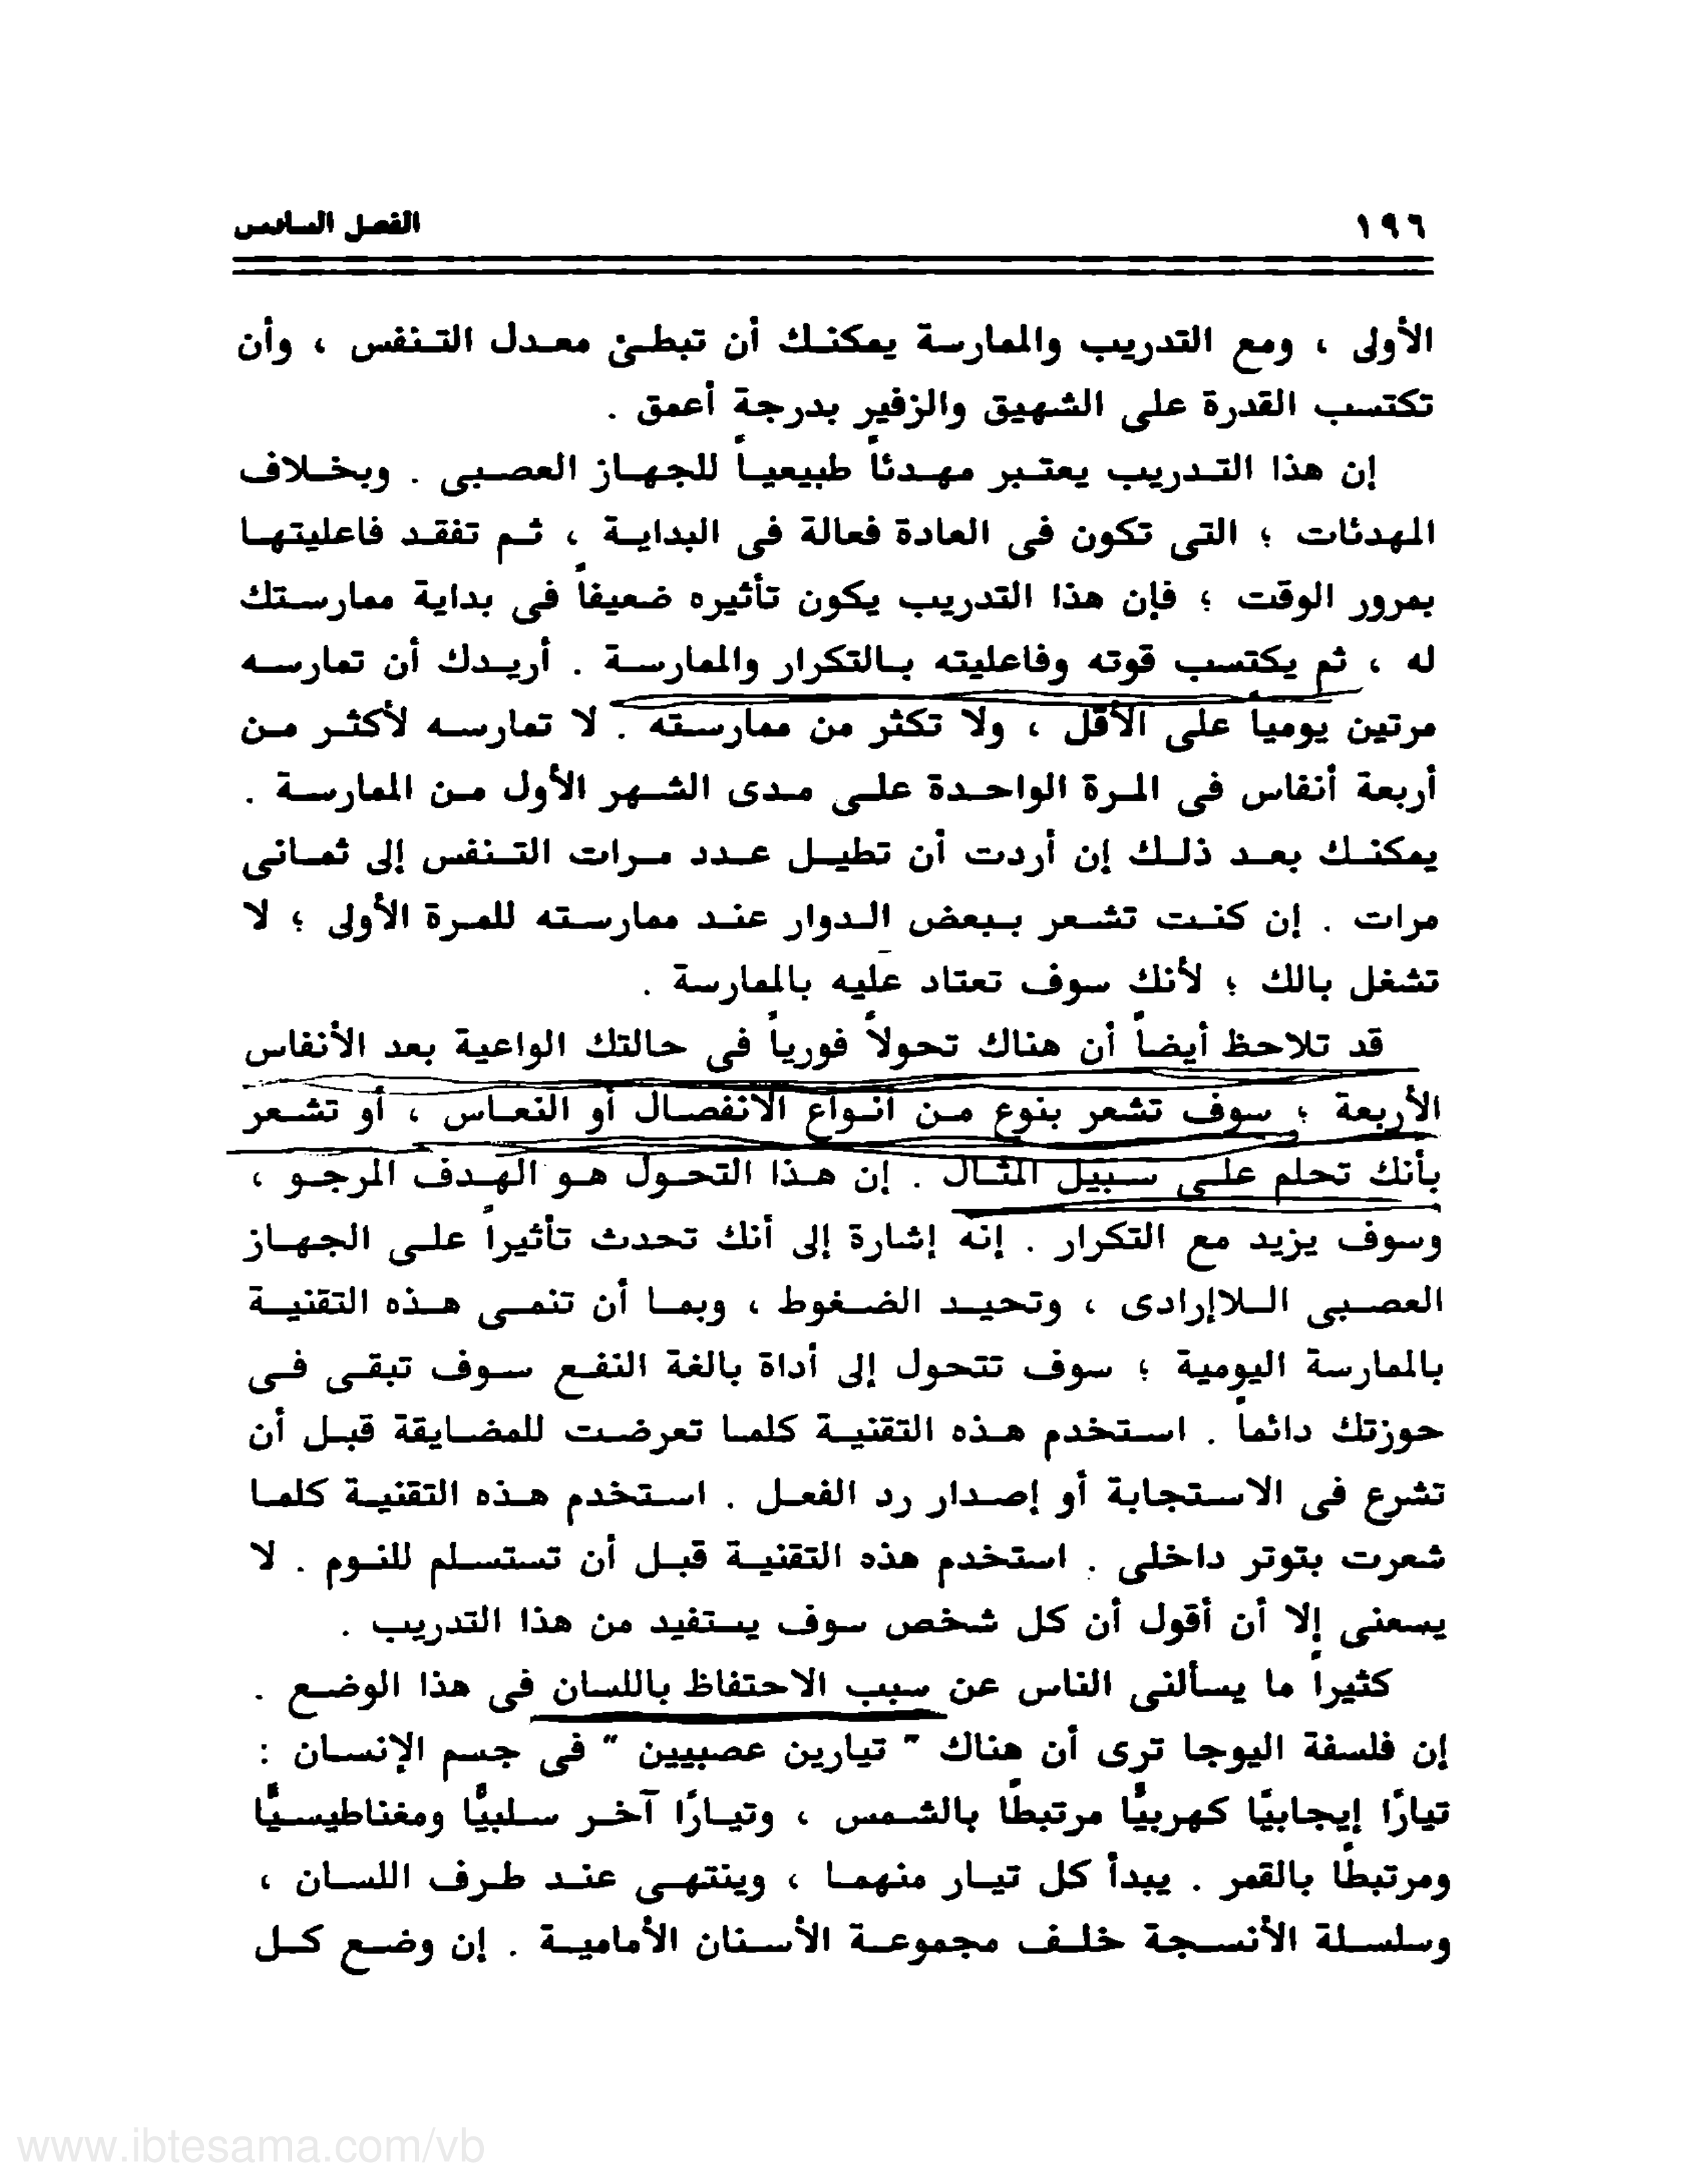 ١٩٦
الفصل السادس
الأولى ، ومع التدريب والممارسة يمكنك أن تبطئ معدل التنفس ، وأن
تكتسب القدرة على الشهيق والزفير بدرجة أعمق .
إن هذا التدريب يعتبر مهدئاً طبيعياً للجهاز العصبى . وبخلاف
المهدئات ؛ التى تكون فى العادة فعالة فى البداية ، ثم تفقد فاعليتها
بمرور الوقت ؛ فإن هذا التدريب يكون تأثيره ضعيفاً فى بداية ممارستك
له ، ثم يكتسب قوته وفاعليته بالتكرار والممارسة . أريدك أن تمارسه
مرتين يومياً على الأقل ، ولا تكثر من ممارسته . لا تمارسه لأكثر من
أربعة أنفاس فى المرة الواحدة على مدى الشهر الأول من الممارسة .
يمكنك بعد ذلك إن أردت أن تطيل عدد مرات التنفس إلى ثمانى
مرات . إن كنت تشعر ببعض الدوار عند ممارسته للمرة الأولى ؛ لا
تشغل بالك ؛ لأنك سوف تعتاد عليه بالممارسة .
قد تلاحظ أيضاً أن هناك تحولاً فورياً فى حالتك الواعية بعد الأنفاس
الأربعة ؛ سوف تشعر بنوع من أنواع الانفصال أو النعاس ، أو تشعر
بأنك تحلم على سبيل المثال . إن هذا التحول هو الهدف المرجو ،
وسوف يزيد مع التكرار . إنه إشارة إلى أنك تحدث تأثيراً على الجهاز
العصبى اللاإرادى ، وتحيد الضغوط ، وبما أن تنمى هذه التقنية
بالممارسة اليومية ؛ سوف تتحول إلى أداة بالغة النفع سوف تبقى فى
حوزتك دائماً . استخدم هذه التقنية كلما تعرضت للمضايقة قبل أن
تشرع فى الاستجابة أو إصدار رد الفعل . استخدم هذه التقنية كلما
شعرت بتوتر داخلى . استخدم هذه التقنية قبل أن تستسلم للنوم . لا
يسعنى إلا أن أقول أن كل شخص سوف يستفيد من هذا التدريب .
كثيراً ما يسألنى الناس عن سبب الاحتفاظ باللسان فى هذا الوضع .
إن فلسفة اليوجا ترى أن هناك " تيارين عصبيين " فى جسم الإنسان :
تيارًا إيجابيًا كهربيًّا مرتبطًا بالشمس ، وتيارًا آخر سلبيًّا ومغناطيسيًّا
ومرتبطًا بالقمر . يبدأ كل تيار منهما ، وينتهى عند طرف اللسان ،
وسلسلة الأنسجة خلف مجموعة الأسنان الأمامية . إن وضع كل
www.ibtesama.com/vb